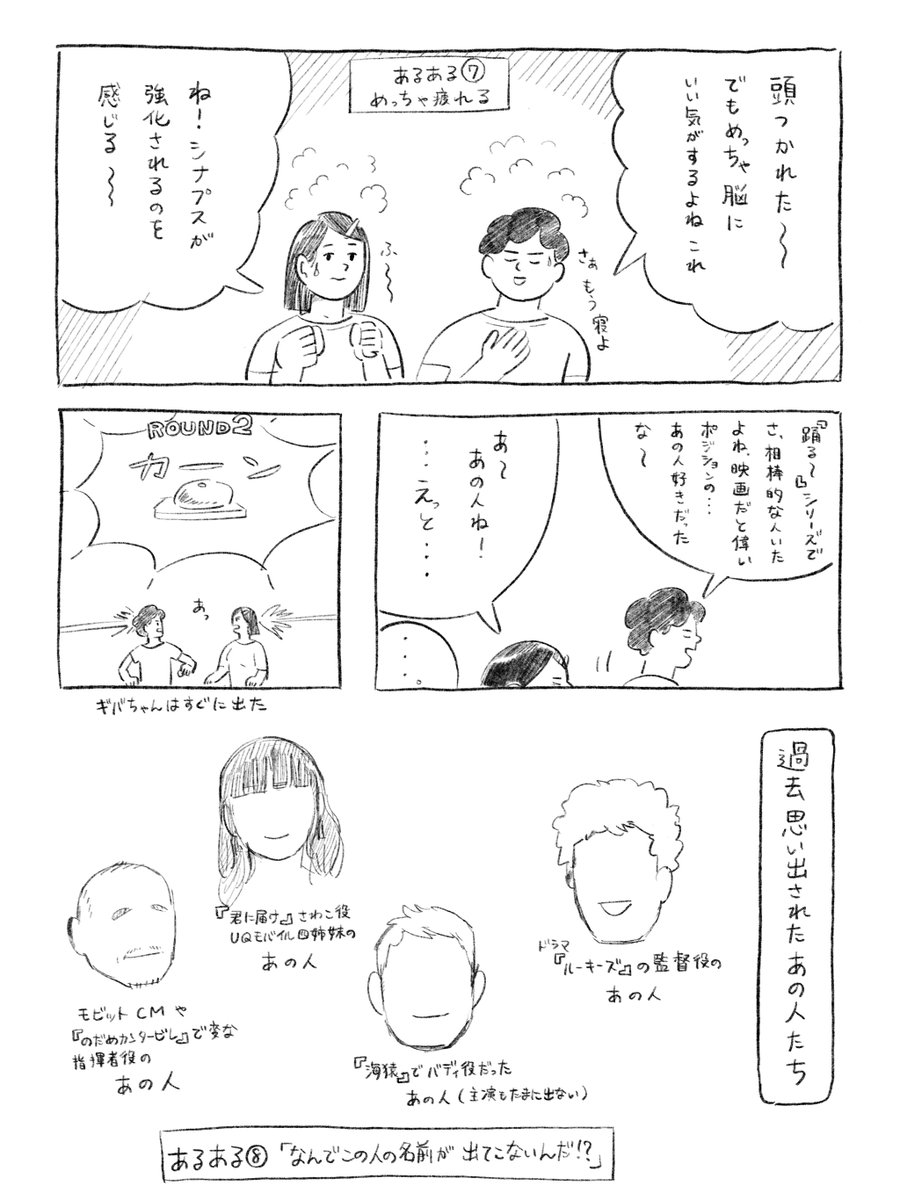 あるある⑦
めっちゃ疲れる
頭つかれた〜
でもめっちゃ脳に
いい気がするよね これ
さぁ もう寝よ
ふ〜〜
ね！シナプスが
強化されるのを
感じる〜〜
『踊る〜』シリーズで
さ、相棒的な人いた
よね、映画だと偉い
ポジションの・・・
あの人好きだった
な〜
あ〜
あの人ね！
・・・えっと・・・
・・・。
ROUND2
カーン
あっ
ギバちゃんはすぐに出た
過去思い出されたあの人たち
ドラマ
『ルーキーズ』の監督役の
あの人
『君に届け』さわこ役
UQモバイル四姉妹の
あの人
『海猿』でバディ役だった
あの人（主演もたまに出ない）
モビットCMや
『のだめカンタービレ』で変な
指揮者役の
あの人
あるある⑧「なんでこの人の名前が出てこないんだ!?」